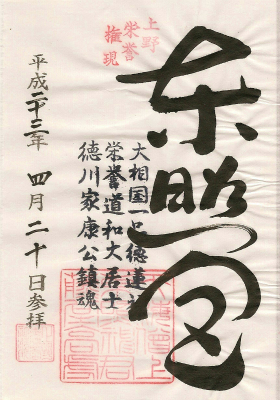 東照宮
上野
栄誉
権現
大相国一品徳蓮社
栄誉道和大居士
徳川家康公鎮魂
平成二十三年 四月二十日参拝